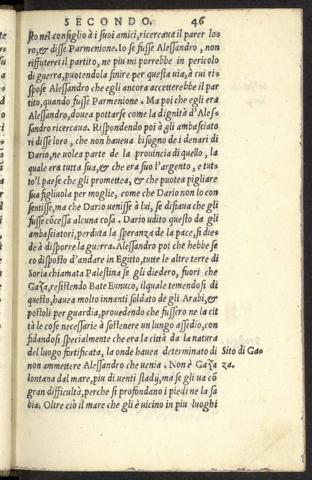 SECONDO. 46
sto nel consiglio à i suoi amici, ricercaua il parer lo-
ro, & disse Parmenione. Io se fusse Alessandro, non
riffuterei il partito, ne piu mi porrebbe in pericolo
di guerra, puotendola finire per questa uia, à cui ri-
spose Alessandro che egli ancora accetterebbe il par
tito, quando fusse Parmenione. Ma poi che egli era
Alessandro, douea pottarse come la dignità d'Ales-
sandro ricercaua. Rispondendo poi à gli ambasciato
ri disse loro, che non haueua bisogno de i denari di
Dario, ne uolea parte de la prouincia di quello, la
quale era tutta sua, & che era suo l'argento, e tut-
to'l paese che gli promettea, & che puotea pigliare
sua figliuola per moglie, come che Dario non lo con
sentisse, ma che Dario uenisse à lui, se disiaua che gli
fusse cōcessa alcuna cosa. Dario udito questo da gli
ambasciatori, perduta la speranza de la pace, si die-
de à disporre la guerra. Alessandro poi che hebbe se
co disposto d'andare in Egitto, tutte le altre terre di
Soria chiamata Palestina se gli diedero, fuori che
Gaza, resistendo Bate Eunuco, il quale temendosi di
questo, hauea molto innanti soldato de gli Arabi, &
postoli per guardia, prouedendo che fussero ne la cit
tà le cose necessarie à sostenere un lungo assedio, con
fidandosi specialmente che era la città da la natura
del luogo fortificata, la onde hauea determinato di
non ammettere Alessandro che uenia. Non è Gaza
lontana dal mare, piu di uenti stadij, ma se gli ua cō
gran difficultà, perche si profondano i piedi ne la sa
bia. Oltre ciò il mare che gli è uicino in piu luoghi
Sito di Ga-
za.